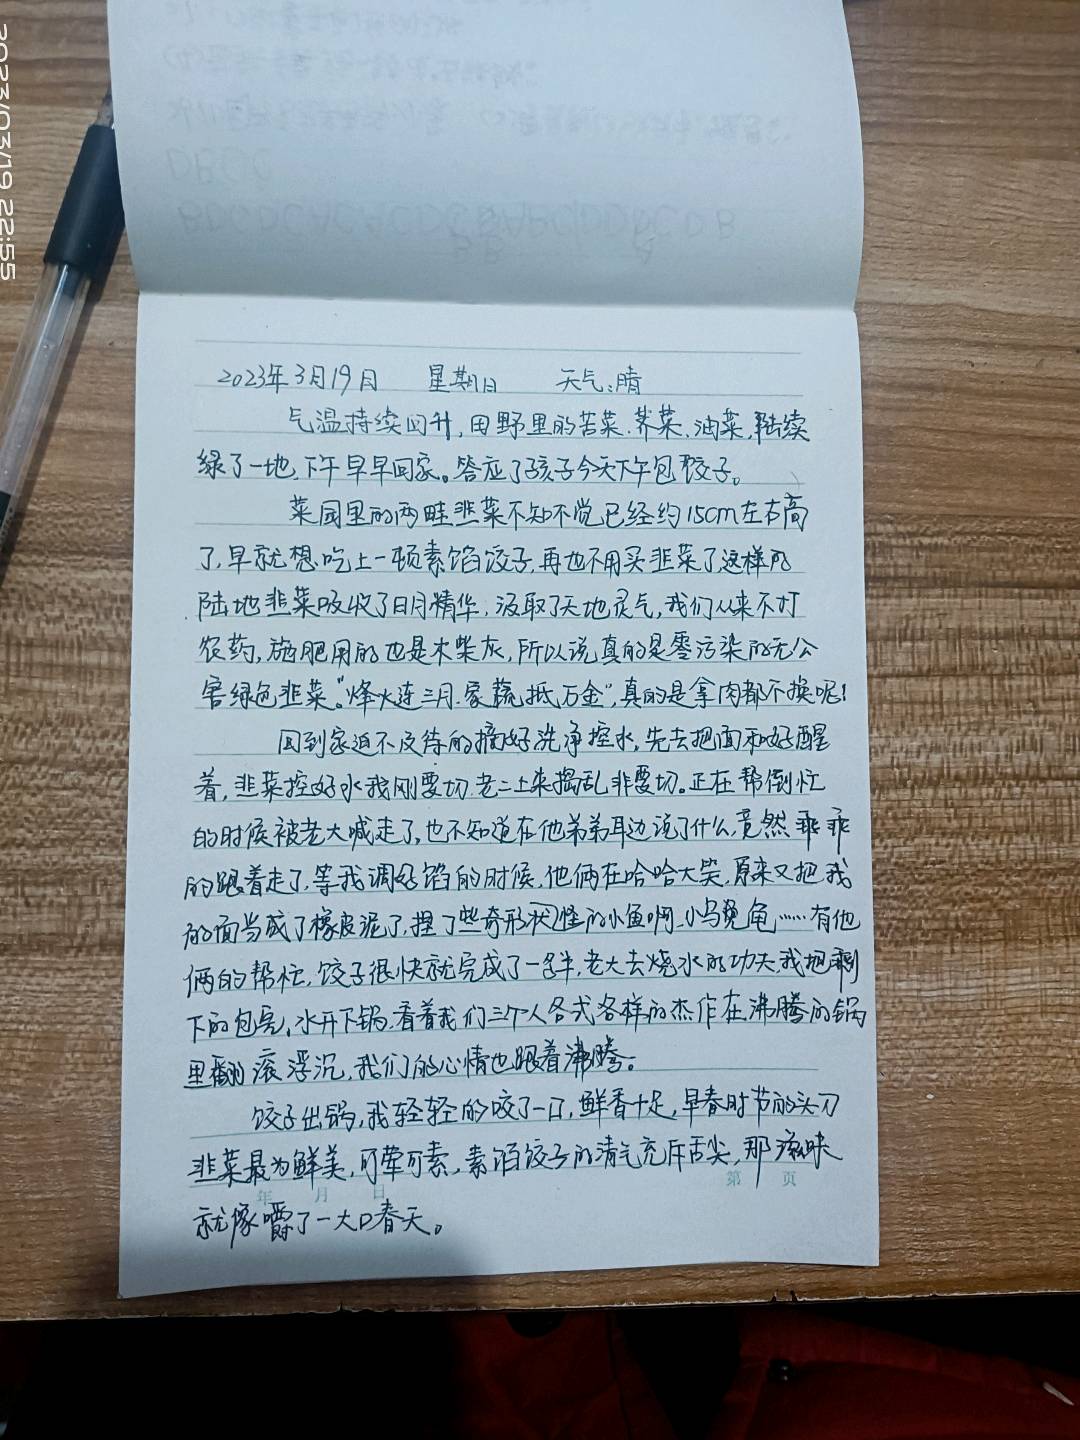 2023/03/19 22:55
BDCDCACACDCCBABCDDDCDB
2023年3月19日 星期日 天气:晴
气温持续回升,田野里的苦菜.荠菜,油菜,陆续
绿了一地,下午早早回家。答应了孩子今天下午包饺子。
菜园里的两畦韭菜不知不觉已经约15cm左右高
了,早就想吃上一顿素馅饺子,再也不用买韭菜了,这样的
陆地韭菜吸收了日月精华,汲取了天地灵气,我们从来不打
农药,施肥用的也是木柴灰,所以说真的是零污染的无公
害绿色韭菜。“烽火连三月.家蔬抵万金”,真的是拿肉都不换呢!
回到家迫不及待的摘好洗净控水,先去把面和好醒
着,韭菜控好水我刚要切.老二上来捣乱非要切。正在帮倒忙
的时候被老大喊走了,也不知道在他弟弟耳边说了什么,竟然乖乖
的跟着走了,等我调好馅的时候,他俩在哈哈大笑,原来又把我
的面当成了橡皮泥了,捏了些奇形状怪的小鱼啊.小乌龟……有他
俩的帮忙,饺子很快就完成了一多半,老大去烧水的功夫,我把剩
下的包完,水开下锅.看着我们三个人各式各样的杰作在沸腾的锅
里翻滚浮沉,我们的心情也跟着沸腾。
饺子出锅,我轻轻的咬了一口,鲜香十足,早春时节的头刀
韭菜最为鲜美,可荤可素,素馅饺子的清气充斥舌尖,那滋味
年 月 日 第 页
就像嚼了一大口春天。